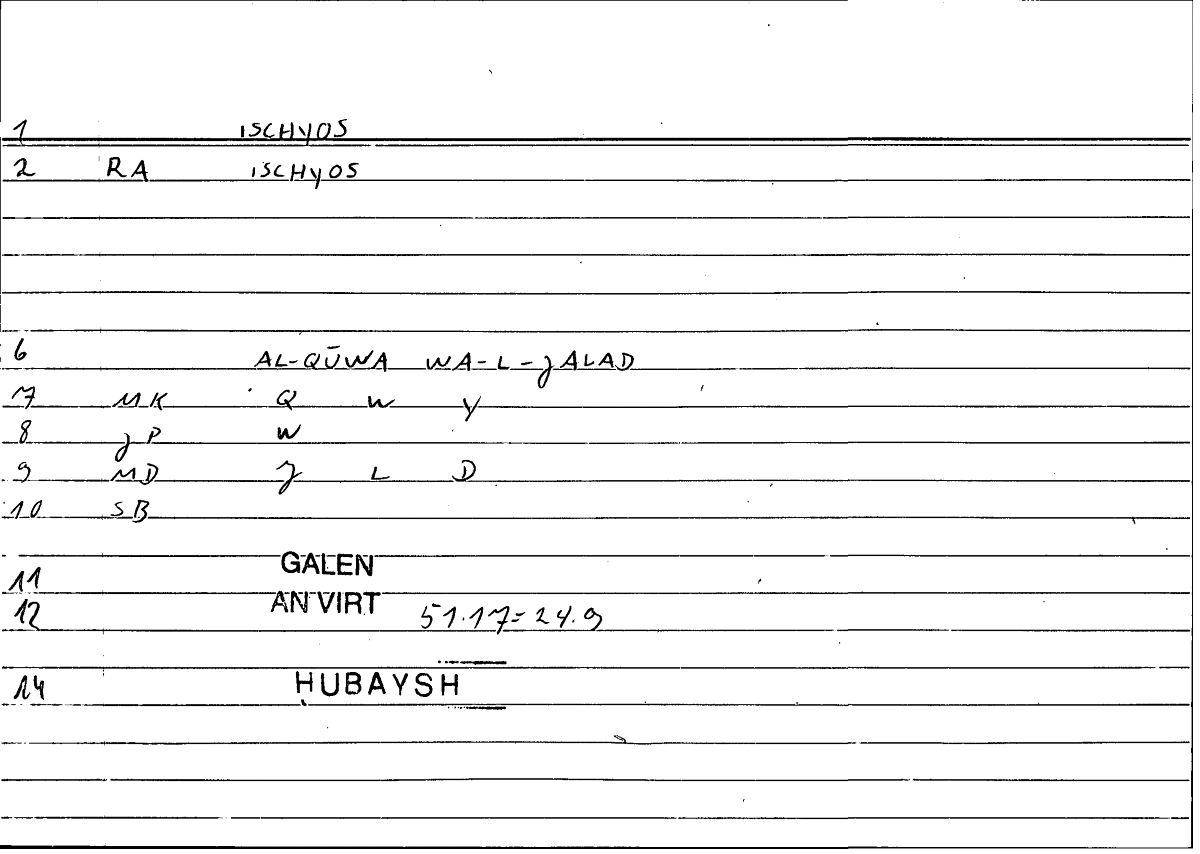 1 ISCHYOS
2 RA ISCHYOS
6 AL-QŪWA WA-L-JALAD
7 MK Q W Y
8 JP W
9 MD J L D
10 SB
11 GALEN
12 AN VIRT 51.17=24.9
14 ḤUBAYSH